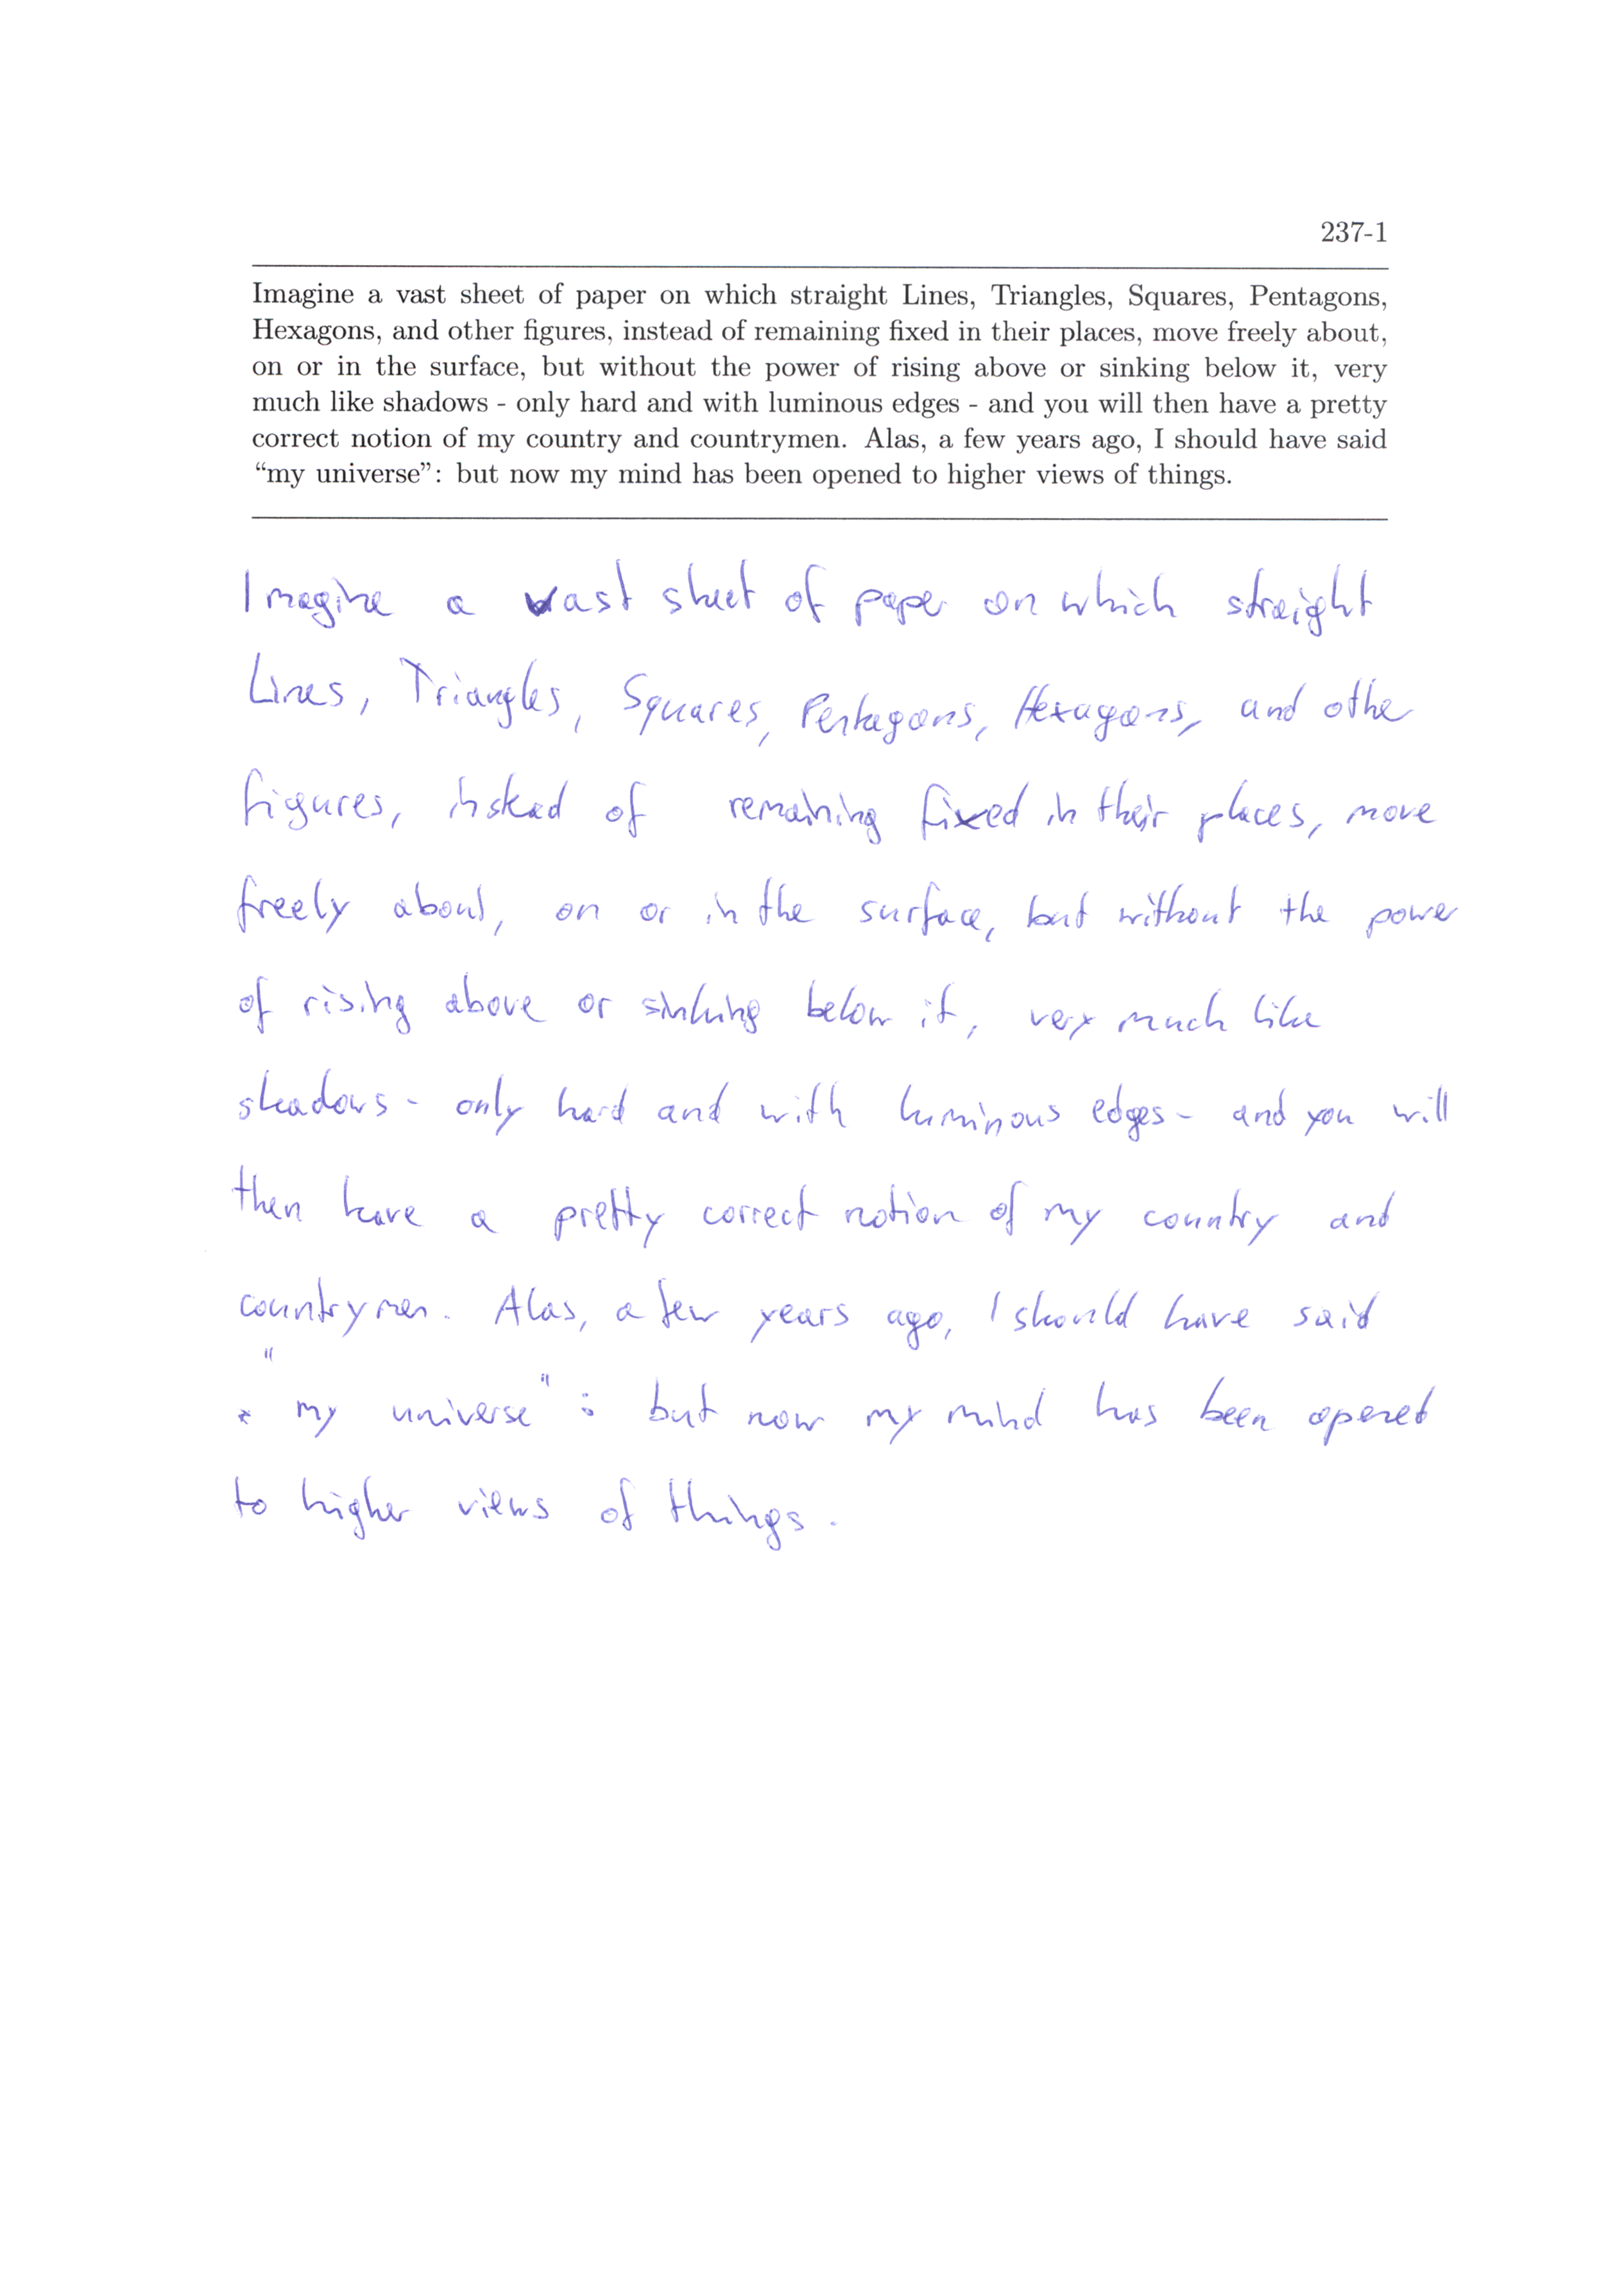 237-1
Imagine a vast sheet of paper on which straight Lines, Triangles, Squares, Pentagons,
Hexagons, and other figures, instead of remaining fixed in their places, move freely about,
on or in the surface, but without the power of rising above or sinking below it, very
much like shadows - only hard and with luminous edges - and you will then have a pretty
correct notion of my country and countrymen. Alas, a few years ago, I should have said
“my universe”: but now my mind has been opened to higher views of things.
Imagine a vast sheet of paper on which straight
Lines, Triangles, Squares, Pentagons, Hexagons, and othe
figures, instead of remaining fixed in their places, move
freely about, on or in the surface, but without the power
of rising above or sinking below it, very much like
shadows - only hard and with luminous edges - and you will
then have a pretty correct notion of my country and
countrymen. Alas, a few years ago, I should have said
"my universe": but now my mind has been opened
to higher views of things.